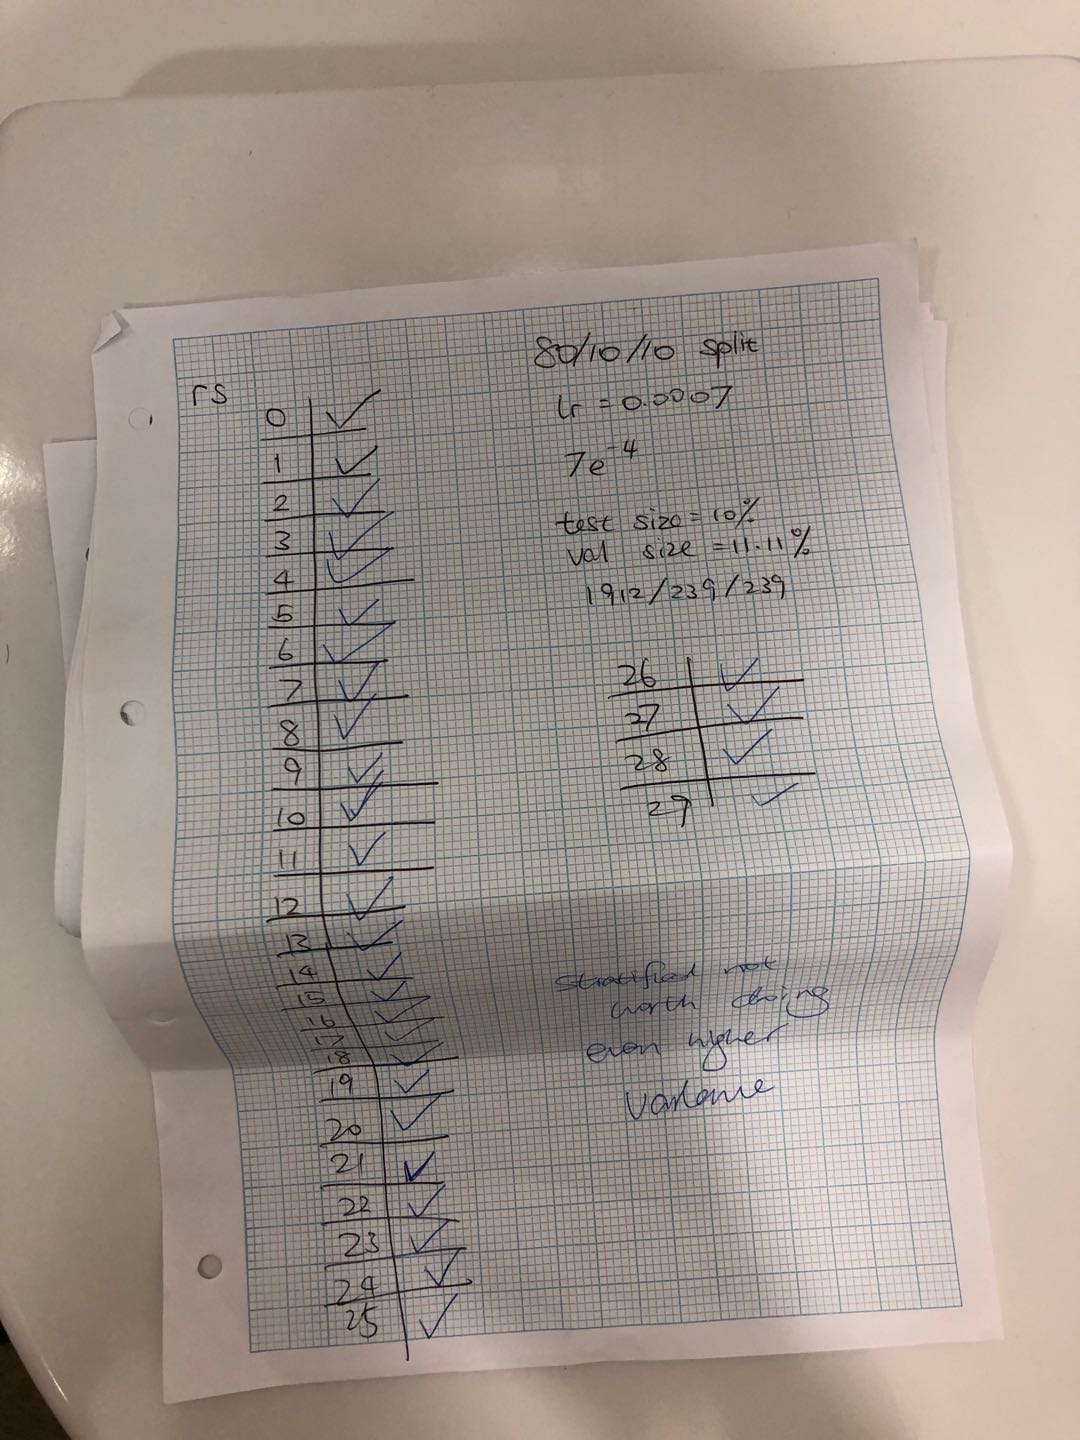 rs
0 ✓
1 ✓
2 ✓
3 ✓
4 ✓
5 ✓
6 ✓
7 ✓
8 ✓
9 ✓
10 ✓
11 ✓
12 ✓
13 ✓
14 ✓
15 ✓
16 ✓
17 ✓
18 ✓
19 ✓
20 ✓
21 ✓
22 ✓
23 ✓
24 ✓
25 ✓
80/10/10 split
lr = 0.0007
7e⁻⁴
test size = 10%
val size = 11.11%
1912/239/239
26 ✓
27 ✓
28 ✓
29 ✓
stratified not
worth doing
even higher
variance